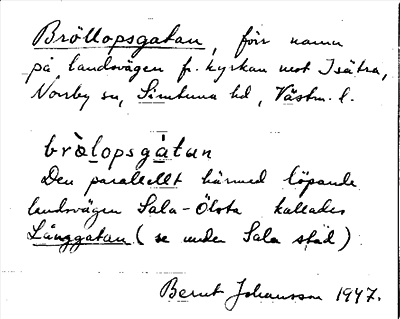 Bröllopsgatan, förr namn
på landsvägen fr. kyrkan mot Isätra,
Norrby sn, Simtuna hd, Västm. l.
bròlopsgàtan
Den parallellt härmed löpande
landsvägen Sala-Ölsta kallades
Långgatan (se under Sala stad)
Bernt Johansson 1947.